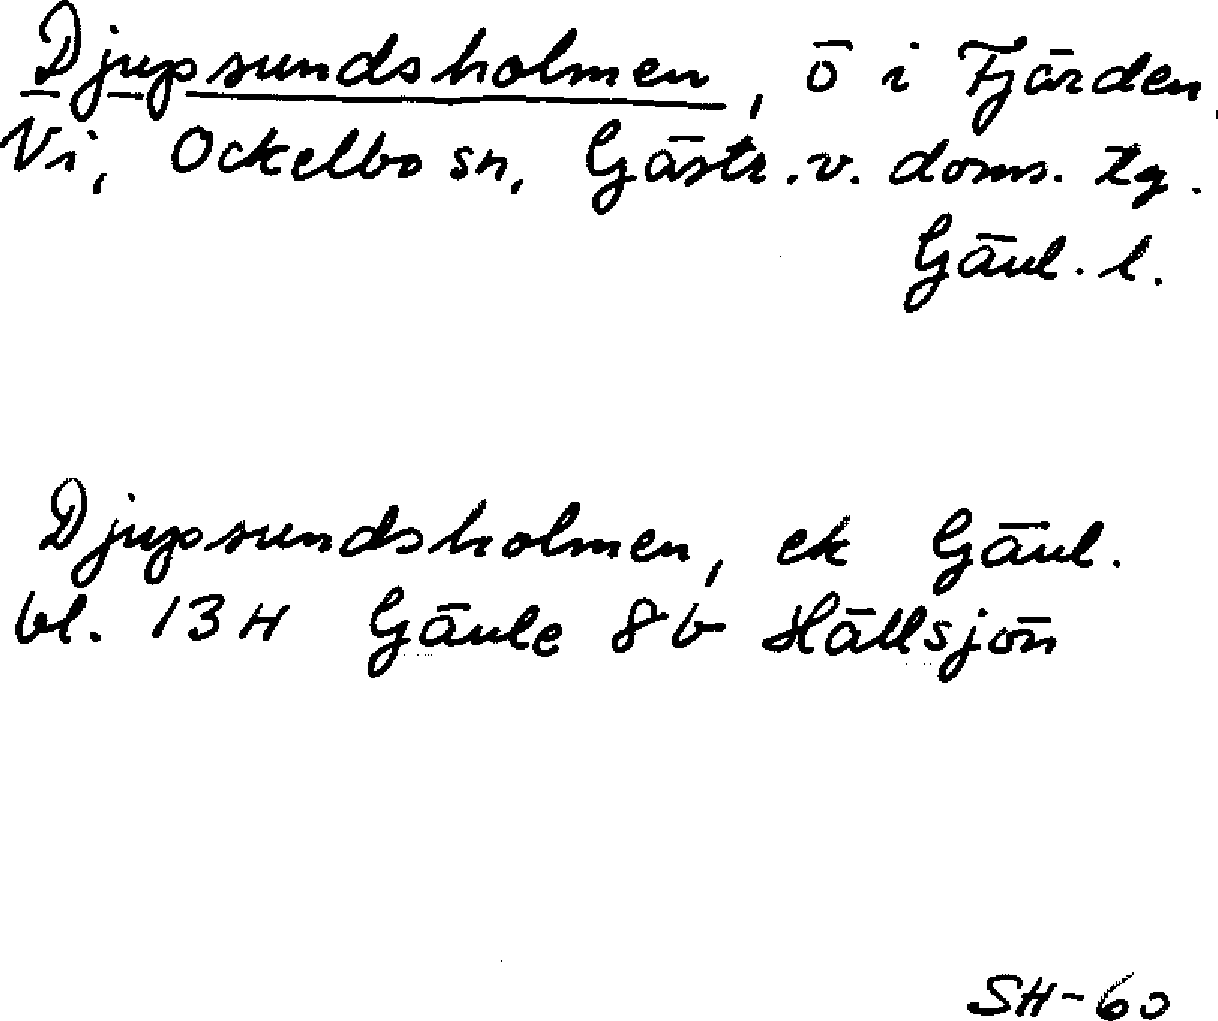 Djupsundsholmen, ö i Fjärden,
Vi, Ockelbo sn, Gästr. v. doms. tg.
Gävl. l.
Djupsundsholmen, ek Gävl.
bl. 13H Gävle 8b Hållsjön
SH-60